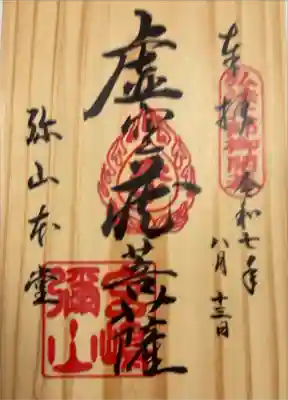 奉拝
令和七年
八月十三日
虚空蔵菩薩
弥山本堂
宮嶋
彌山